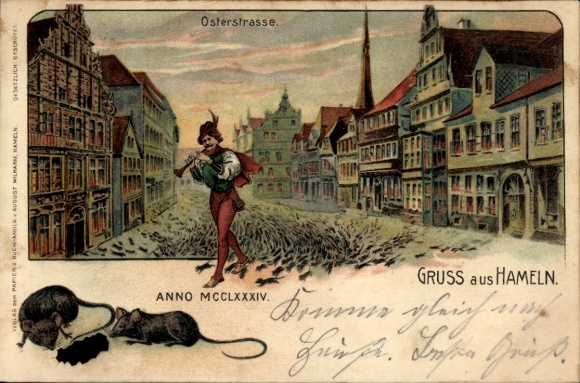 Osterstrasse.
GESETZLICH GESCHÜTZT.
VERLAG DER PAPIER & BUCHHANDLG. v. AUGUST WILHARM, HAMELN.
ANNO MCCLXXXIV.
GRUSS aus HAMELN.
Komme gleich nach
Hause. Gruß.